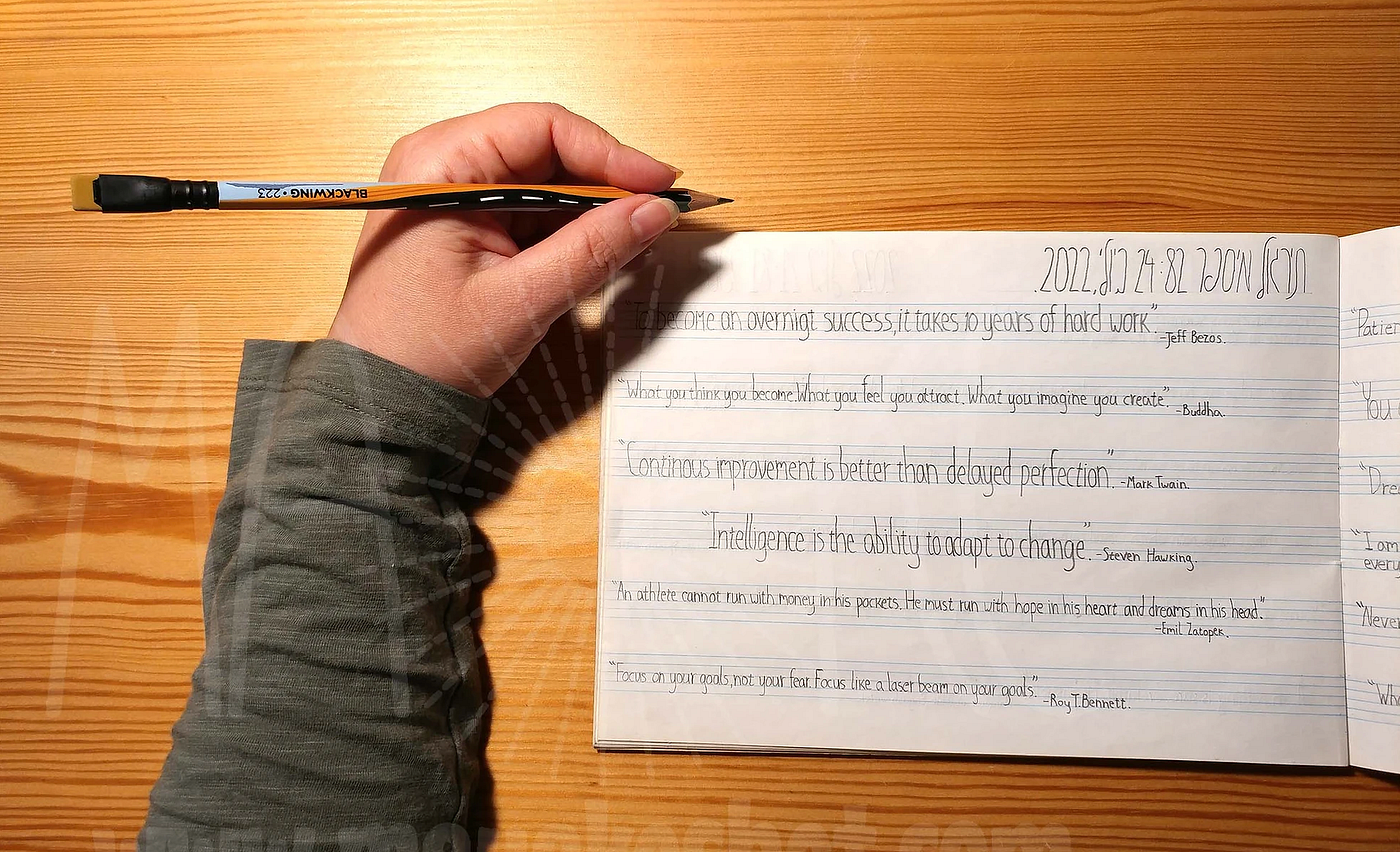 BLACKWING • 223
תרגול מספר 82: 24 ביולי, 2022.
"To become an overnigt success,it takes 10 years of hard work".
-Jeff Bezos.
"What you think you become.What you feel you attract. What you imagine you create".
-Buddha.
"Continous improvement is better than delayed perfection". -Mark Twain.
"Intelligence is the ability to adapt to change". -Steven Hawking.
"An athlete cannot run with money in his pockets. He must run with hope in his heart and dreams in his head."
-Emil Zatopek.
"Focus on your goals,not your fear. Focus like a laser beam on your goals".
-Roy T.Bennett.
"You
"I am
"Never